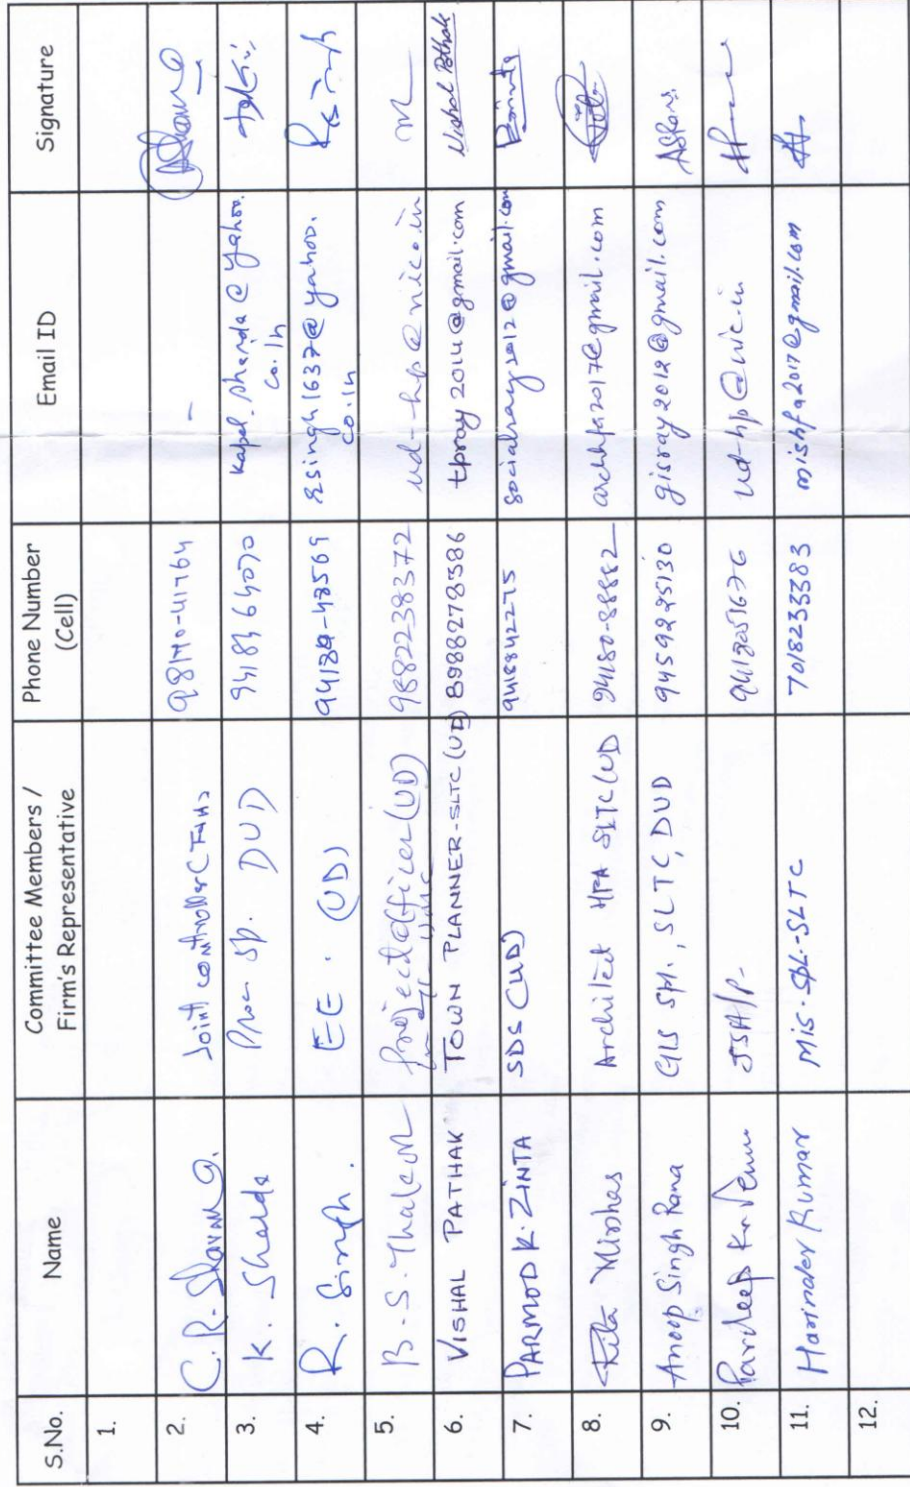 S.No. Name Committee Members / Firm's Representative Phone Number (Cell) Email ID Signature
1.
2. C. R. Sharma Joint Controller (F&A) 98170-41764 -
3. K. Sharda DUD 94183 64070 Kapil.sharda@yahoo.
co.in
4. R. Singh. EE. (UD) rsingh1637@yahoo.
co.in R Singh
5. B.S. Thakur Project officer (UD) 9882238372 ud-hp@nic.in
6. VISHAL PATHAK TOWN PLANNER-SLTC (UD) 8988278586 tpray2014@gmail.com Vishal Pathak
7. PARMOD K. ZINTA SDS (UD) socialray2012@gmail.com
8. Architect HFA SLTC (UD 94180-88882 archhfa2017@gmail.com
9. Anoop Singh Rana GIS Spl., SLTC, DUD 9459225130 gisray2012@gmail.com
10. Pardeep Kr JSA/P ud-hp@nic.in
11. Harinder Kumar MIS-SPL-SLTC 7018233383 mishfa2017@gmail.com
12.